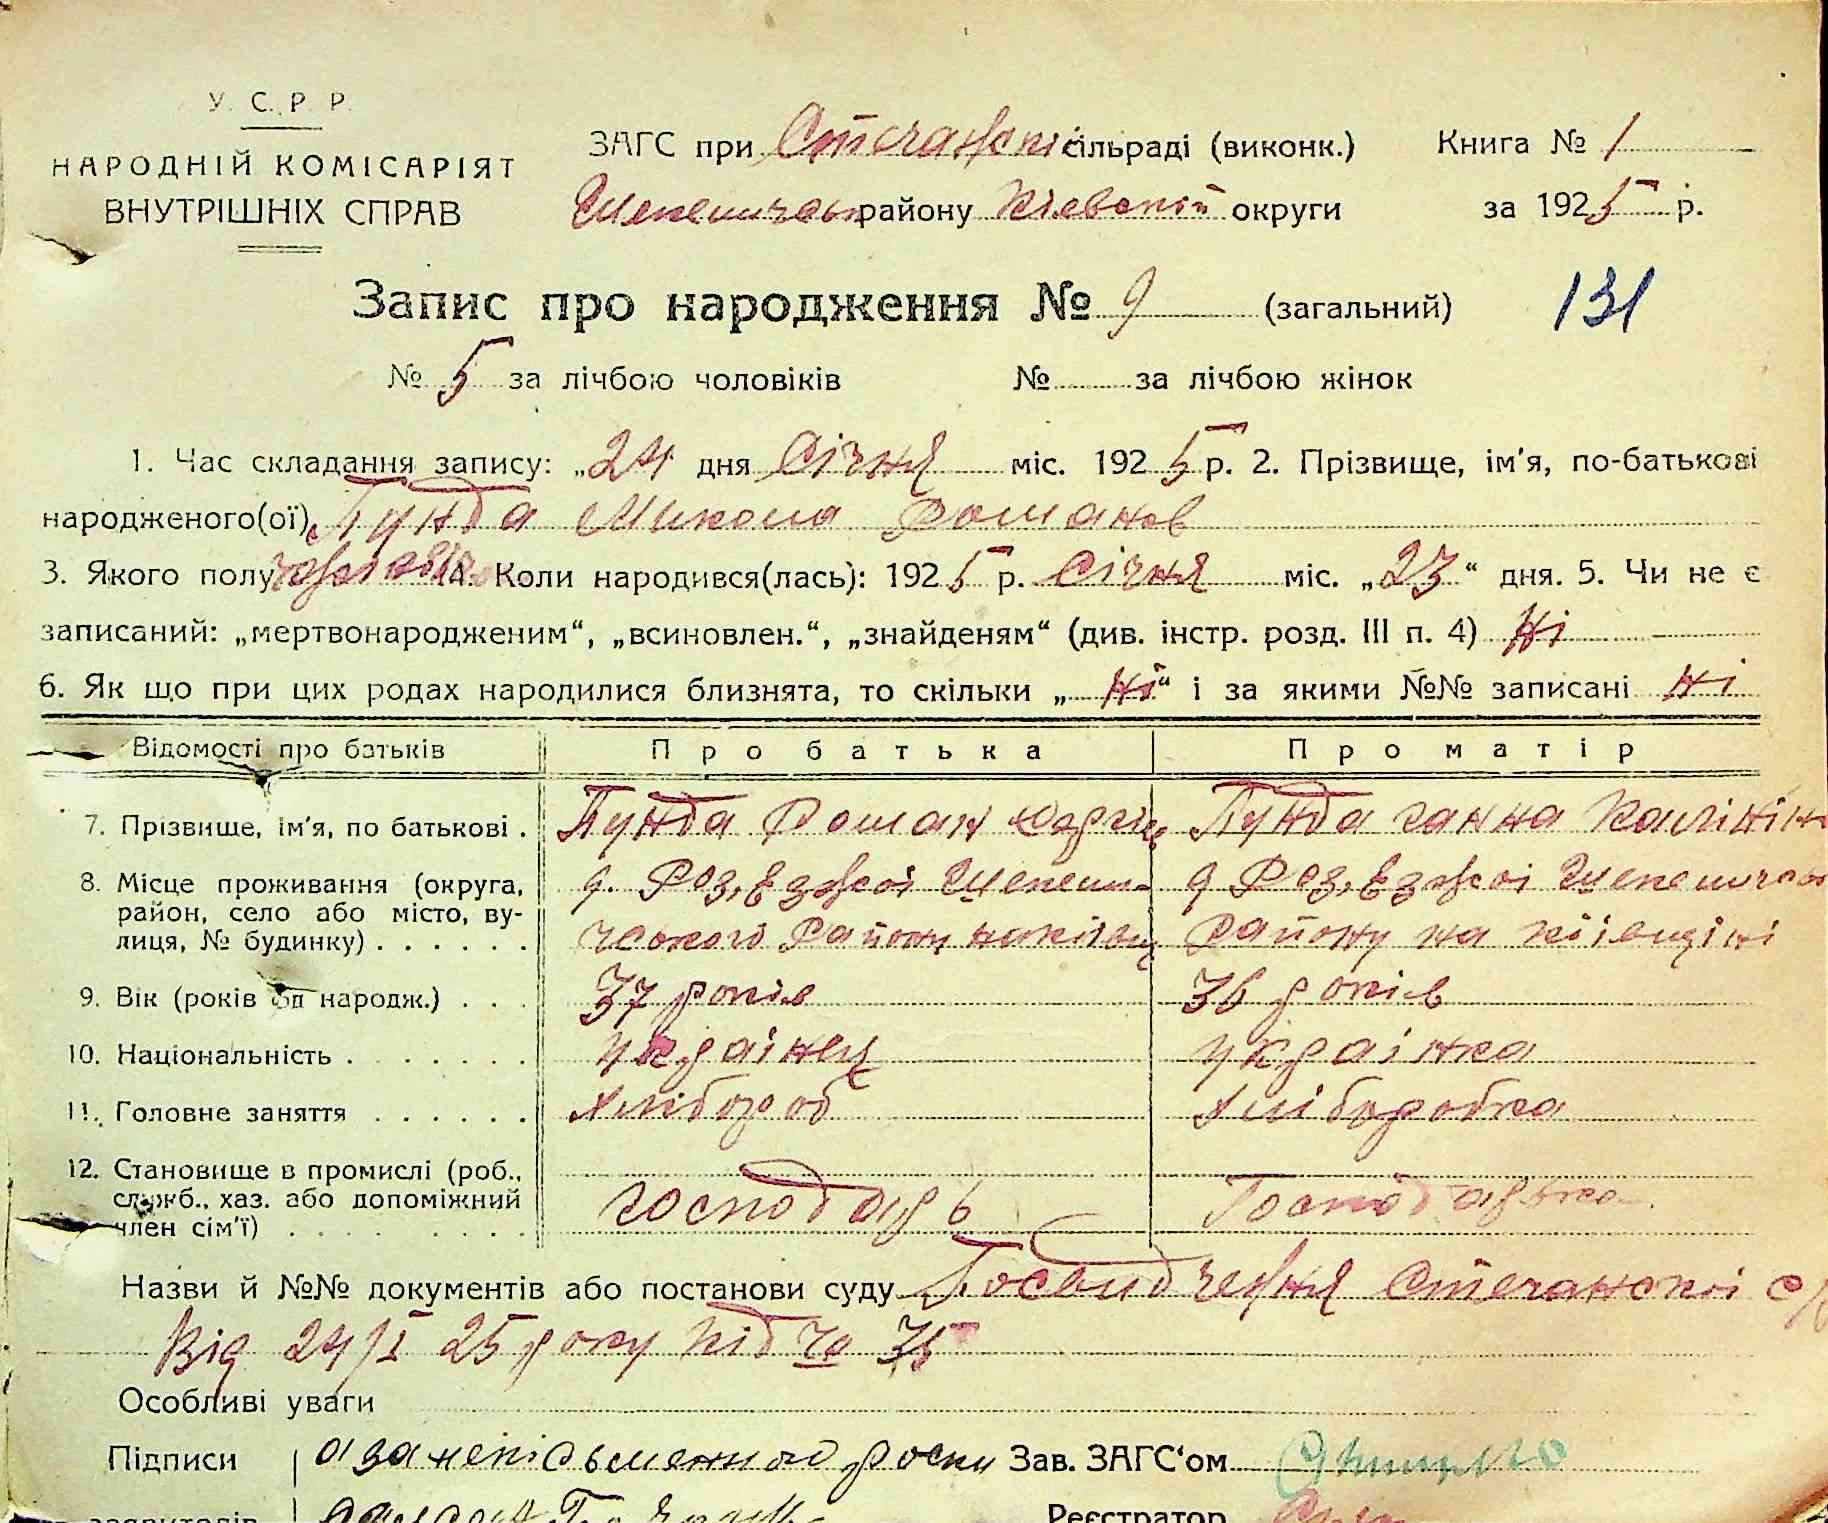 У. С. Р. Р.
НАРОДНІЙ КОМІСАРІЯТ
ВНУТРІШНІХ СПРАВ
ЗАГС при Стечанскі сільраді (виконк.) Книга № 1
району Киевской округи за 1925 р.
Запис про народження № 9 (загальний) 131
№ 5 за лічбою чоловіків № за лічбою жінок
1. Час складання запису: „24 дня Січня міс. 1925 р. 2. Прізвище, ім'я, по-батькові
народженого(ої) Пунда Микола Романов
3. Якого полу 4. Коли народився(лась): 1925 р. Січня міс. „23“ дня. 5. Чи не є
записаний: „мертвонародженим“, „всиновлен.“, „знайденям“ (див. інстр. розд. III п. 4) Ні
6. Як що при цих родах народилися близнята, то скільки „Ні“ і за якими №№ записані Ні
Відомості про батьків Про батька Про матір
7. Прізвище, ім'я, по батькові . Пунда Роман Пунда ганна
8. Місце проживання (округа, район, село або місто, вулиця, № будинку) . . . . . .
району на
9. Вік (років од народж.) . . . 37 років 36 років
10. Національність . . . . . . . украінец украінка
11. Головне заняття . . . . . . хлібороб хліборобка
12. Становище в промислі (роб., служб., хаз. або допоміжний член сім'ї) . . . . . . . . господарь Господарька
Назви й №№ документів або постанови суду Посвидчення Стечанскоі с/р
Від 24/I 25 року під ч. 35
Особливі уваги
Підписи а за непісьменного Зав. ЗАГС'ом
заявителів Реєстратор